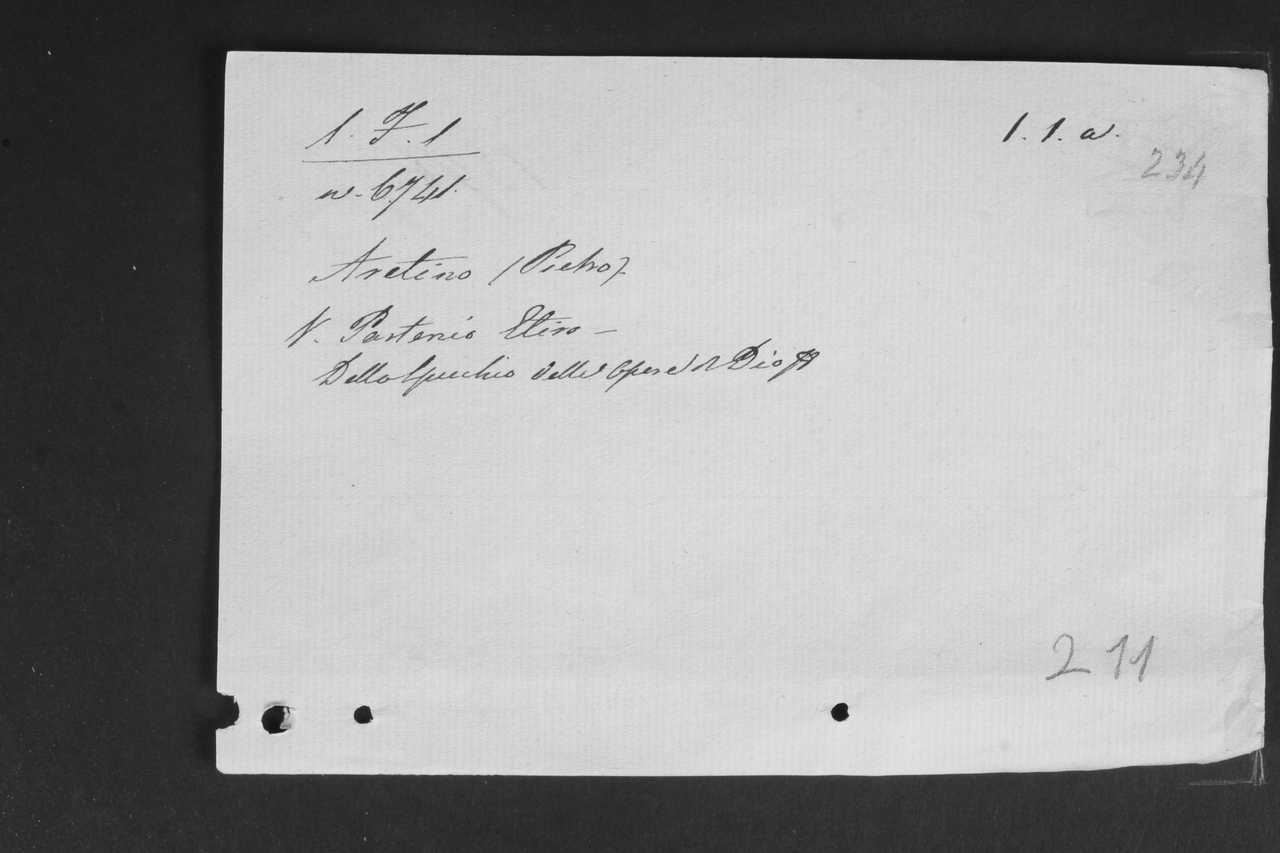 1. F. 1
1. 1. a.
234
n. 6741.
Aretino (Pietro).
V. Partenio Etiro —
Dello Specchio delle Opere di Dio
211